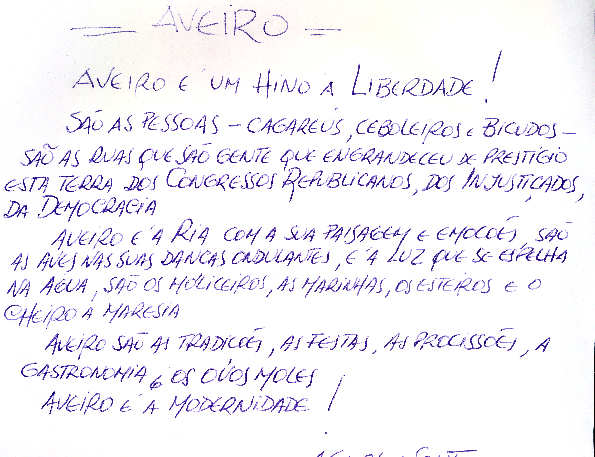 = AVEIRO =
AVEIRO É UM HINO A LIBERDADE!
SÃO AS PESSOAS - CAGARÉUS, CEBOLEIROS E BICUDOS -
SÃO AS RUAS QUE SÃO GENTE QUE ENGRANDECEU DE PRESTÍGIO
ESTA TERRA DOS CONGRESSOS REPUBLICANOS, DOS INJUSTIÇADOS,
DA DEMOCRACIA
AVEIRO É A RIA COM A SUA PAISAGEM E EMOÇÕES, SÃO
AS AVES NAS SUAS DANÇAS ONDULANTES, É A LUZ QUE SE ESPELHA
NA ÁGUA, SÃO OS MOLICEIROS, AS MARINHAS, OS ESTEIROS E O
CHEIRO A MARESIA
AVEIRO SÃO AS TRADIÇÕES, AS FESTAS, AS PROCISSÕES, A
GASTRONOMIA, OS OVOS MOLES
AVEIRO É A MODERNIDADE!